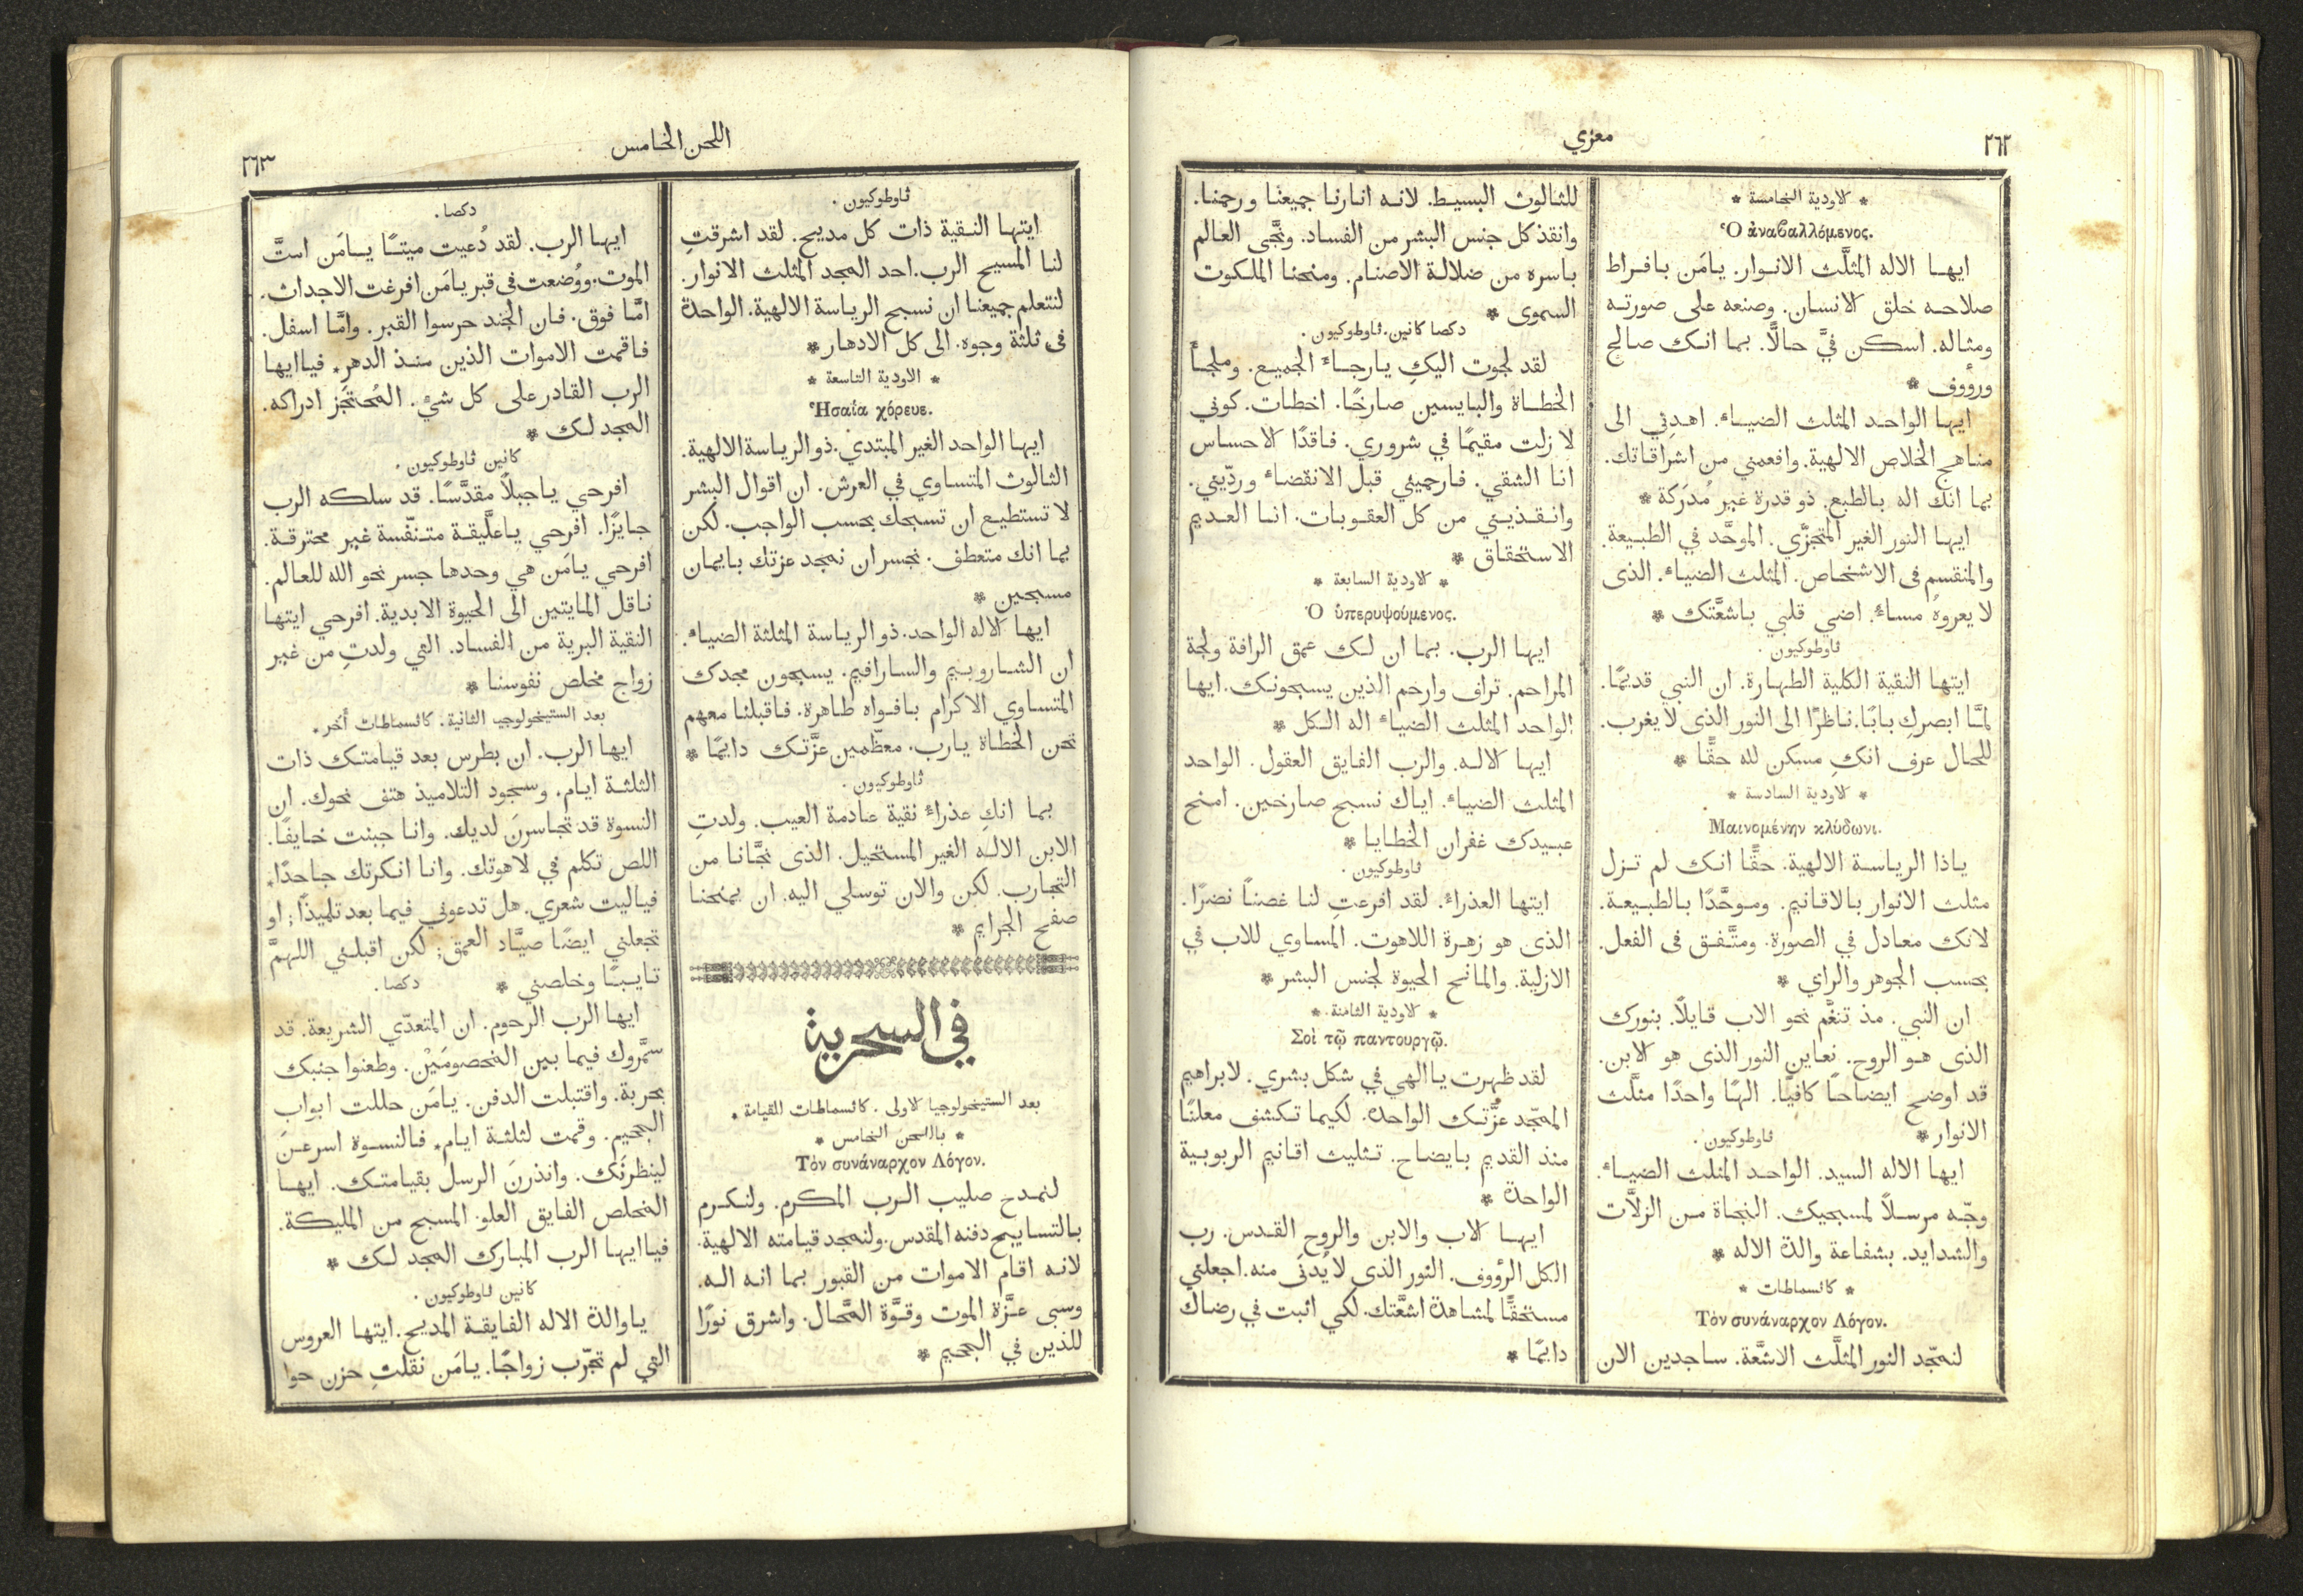 ٢٦٢
معزي
* الاودية الخامسة *
Ὁ ἀναβαλλόμενος.
ايها الاله المثلَّث الانوار. يامَن بافراط
صلاحه خلق الانسان. وصنعه على صورته
ومثاله. اسكن فيَّ حالًّا. بما انك صالح
ورؤوف *
ايها الواحد المثلث الضياء. اهدِني الى
مناهج الخلاص الالهية. وافعمني من اشراقاتك.
بما انك اله بالطبع. ذو قدرة غير مُدرَكة *
ايها النور الغير المتجزّي. الموحَّد في الطبيعة.
والمنقسم فى الاشخاص. المثلث الضياء. الذى
لا يعروهُ مساءٌ. اضي قلبي باشعَّتك *
ثاوطوكيون.
ايتها النقية الكلية الطهارة. ان النبي قديمًا.
لمَّا ابصركِ بابًا. ناظرًا الى النور الذى لا يغرب.
للحال عرف انكِ مسكن لله حقًّا *
* الاودية السادسة *
Μαινομένην κλύδωνι.
ياذا الرياسة الالهية. حقًّا انك لم تزل
مثلث الانوار بالاقانيم. وموحَّدًا بالطبيعة.
لانك معادل في الصورة. ومتَّفق فى الفعل.
بحسب الجوهر والراي *
ان النبي. مذ تنغَّم نحو الاب قايلاً. بنورك
الذى هو الروح. نعاين النور الذى هو الابن.
قد اوضح ايضاحًا كافيًا. الهًا واحدًا مثلَّث
الانوار * ثاوطوكيون.
ايها الاله السيد. الواحد المثلث الضياء.
وجّه مرسلاً لمسبحيك. النجاة من الزلَّات
والشدايد. بشفاعة والدة الاله *
* كاتسماطات *
Τὸν συνάναρχον Λόγον.
لنمجّد النور المثلَّث الاشعَّة. ساجدين الان
للثالوث البسيط. لانه انارنا جميعنا ورحمنا.
وانقذ كل جنس البشر من الفساد. ونجَّى العالم
باسره من ضلالة الاصنام. ومنحنا الملكوت
السموى *
دكصا كانين. ثاوطوكيون.
لقد لجوت اليكِ يارجاءَ الجميع. وملجأَ
الخطاة والبايسين صارخًا. اخطات. كوني
لا زلت مقيمًا في شروري. فاقدًا الاحساس
انا الشقي. فارحميني قبل الانقضاء وردّيني.
وانقذيني من كل العقوبات. انا العديم
الاستحقاق *
* الاودية السابعة *
Ὁ ὑπερυψούμενος.
ايها الرب. بما ان لك عمق الرافة ولجة
المراحم. تراف وارحم الذين يسبحونك. ايها
الواحد المثلث الضياء اله الكل *
ايها الاله. والرب الفايق العقول. الواحد
المثلث الضياء. اياك نسبح صارخين. امنح
عبيدك غفران الخطايا *
ثاوطوكيون.
ايتها العذراءُ. لقد افرعتِ لنا غصنًا نضرًا.
الذى هو زهرة اللاهوت. المساوي للاب في
الازلية. والمانح الحيوة لجنس البشر *
* الاودية الثامنة *
Σοὶ τῷ παντουργῷ.
لقد ظهرت ياالهي في شكل بشري. لابراهيم
الممجّد عزَّتك الواحدة. لكيما تكشف معلنًا
منذ القديم بايضاح. تثليث اقانيم الربوبية
الواحدة *
ايها الاب والابن والروح القدس. رب
الكل الرؤوف. النور الذى لا يُدنَى منه. اجعلني
مستحقًّا لمشاهدة اشعَّتك. لكي اثبت في رضاك
دايمًا *
اللحن الخامس
٢٦٣
ثاوطوكيون.
ايتها النقية ذات كل مديح. لقد اشرقتِ
لنا المسيح الرب. احد المجد المثلث الانوار.
لنتعلم جميعنا ان نسبح الرياسة الالهية. الواحدة
فى ثلثة وجوه. الى كل الادهار *
* الاودية التاسعة *
Ἡσαΐα χόρευε.
ايها الواحد الغير المبتدي. ذو الرياسة الالهية.
الثالوث المتساوي في العرش. ان اقوال البشر
لا تستطيع ان تسبحك بحسب الواجب. لكن
بما انك متعطف. نجسر ان نمجد عزتك بايمان
مسبحين *
ايها الاله الواحد. ذو الرياسة المثلثة الضياء.
ان الشاروبيم والسارافيم. يسبحون مجدك
المتساوي الاكرام بافواه طاهرة. فاقبلنا معهم
نحن الخطاة يارب. معظّمين عزَّتك دايمًا *
ثاوطوكيون.
بما انكِ عذراءُ نقية عادمة العيب. ولدتِ
الابن الاله الغير المستحيل. الذى نجَّانا من
التجارب. لكن والان توسلي اليه. ان يمنحنا
صفح الجرايم *
في السحرية
بعد الستيخولوجيا الاولى. كاتسماطات القيامة.
* باللحن الخامس *
Τὸν συνάναρχον Λόγον.
لنمدح صليب الرب المكرم. ولنكرم
بالتسابيح دفنه المقدس. ولنمجد قيامته الالهية.
لانه اقام الاموات من القبور بما انه اله.
وسبى عزَّة الموت وقوَّة المحَّال. واشرق نورًا
للذين في الجحيم *
دكصا.
ايها الرب. لقد دُعيت ميتًا يامَن امتَّ
الموت. ووُضعت في قبر يامَن افرغت الاجداث.
امَّا فوق. فان الجند حرسوا القبر. وامَّا اسفل.
فاقمت الاموات الذين منذ الدهر. فياايها
الرب القادر على كل شيءٍ. المُحتجَز ادراكه.
المجد لك *
كانين ثاوطوكيون.
افرحي ياجبلاً مقدَّسًا. قد سلكه الرب
جايزًا. افرحي ياعلَّيقة متنفّسة غير محترقة.
افرحي يامَن هي وحدها جسر نحو الله للعالم.
ناقل المايتين الى الحيوة الابدية. افرحي ايتها
النقية البرية من الفساد. التي ولدتِ من غير
زواج مخلص نفوسنا *
بعد الستيخولوجيا الثانية. كاتسماطات أُخَر.
ايها الرب. ان بطرس بعد قيامتك ذات
الثلثة ايام. وسجود التلاميذ هتف نحوك. ان
النسوة قد تجاسرنَ لديك. وانا جبنت خايفًا.
اللص تكلم في لاهوتك. وانا انكرتك جاحدًا.
فياليت شعري. هل تدعوني فيما بعد تلميذًا; او
تجعلني ايضًا صيَّاد العمق; لكن اقبلني اللهمَّ
تايبًا وخلصني * دكصا.
ايها الرب الرحوم. ان المتعدّي الشريعة. قد
سمَّروك فيما بين المخصومَيْن. وطعنوا جنبك
بحربة. واقتبلت الدفن. يامَن حللت ابواب
الجحيم. وقمت لثلثة ايام. فالنسوة اسرعنَ
لينظرنَك. وانذرنَ الرسل بقيامتك. ايها
المخلص الفايق العلو. المسبح من المليكة.
فياايها الرب المبارك المجد لك *
كانين ثاوطوكيون.
ياوالدة الاله الفايقة المديح. ايتها العروس
التي لم تجرّب زواجًا. يامَن نقلتِ حزن حوا